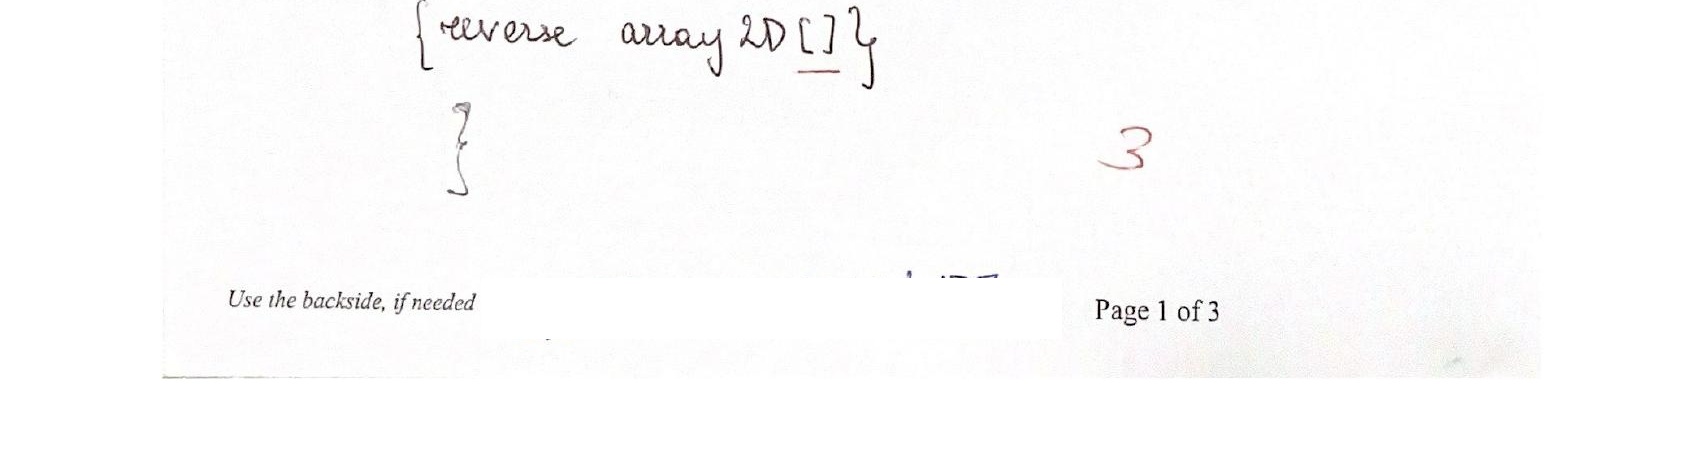 {reverse array2D[]}
}
3
Use the backside, if needed
Page 1 of 3